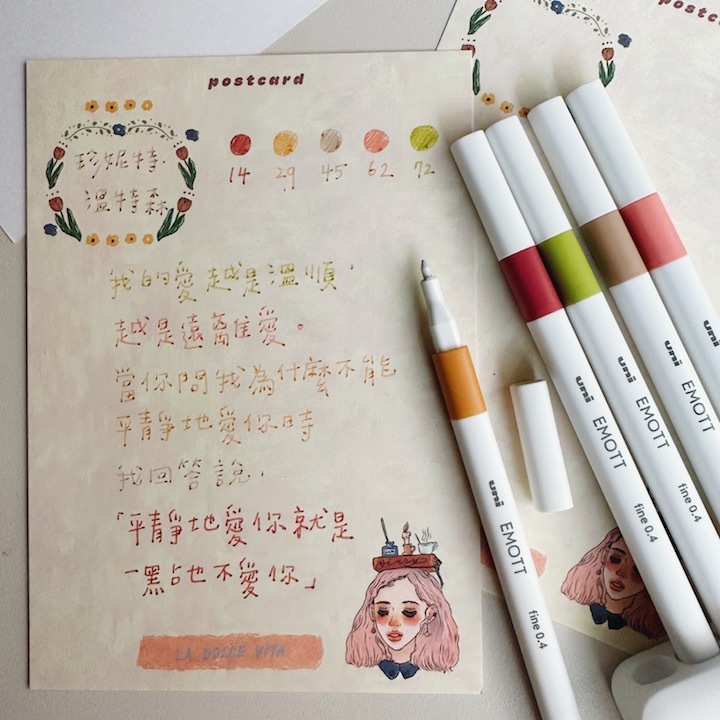 postcard
珍妮特·
溫特森
14 29 45 62 72
我的愛越是溫順，
越是遠離愛。
當你問我為什麼不能
平靜地愛你時
我回答說，
「平靜地愛你就是
一點也不愛你」
LA DOLCE VITA
postcard
uni EMOTT fine 0.4
uni EMOTT fine 0.4
uni EMOTT fine 0.4
uni EMOTT
uni EMOTT